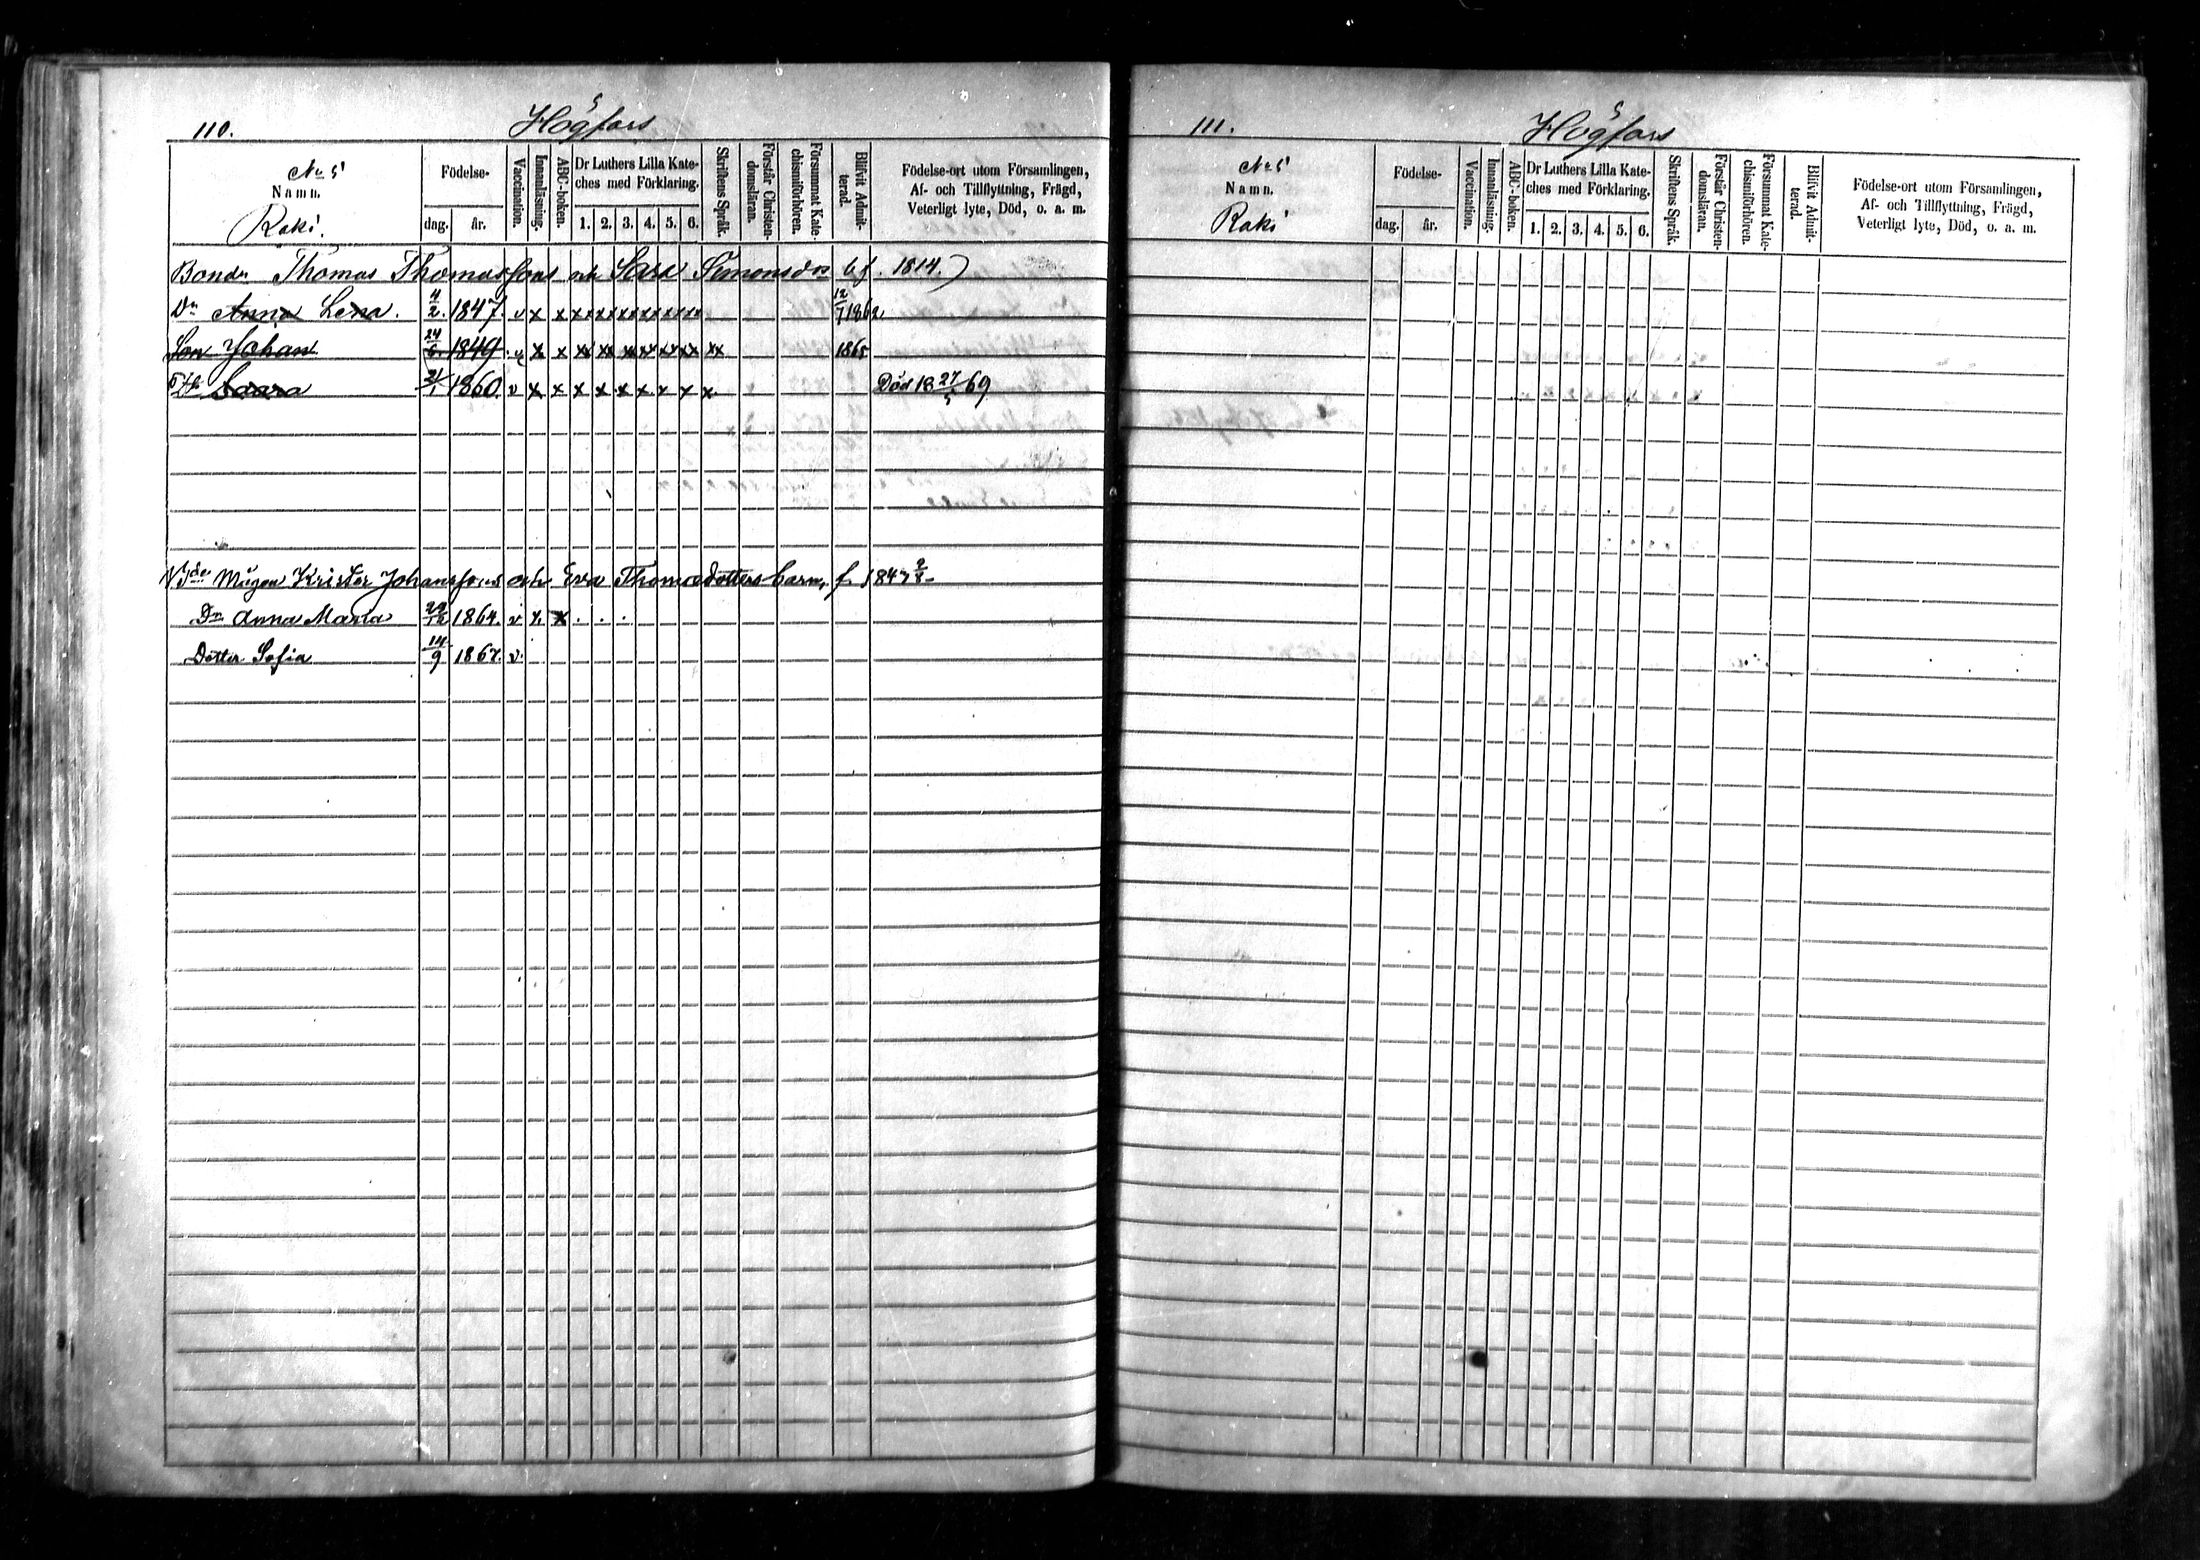 110.
Högfors
No 5
Namn.
Raki.
Födelse-
dag. år.
Vaccination.
Innanläsning.
ABC-boken.
Dr Luthers Lilla Kate-
ches med Förklaring.
1. 2. 3. 4. 5. 6.
Skriftens Språk.
Förstår Christen-
domsläran.
Försummat Kate-
chismiförhören.
Blifvit Admit-
terad.
Födelse-ort utom Församlingen,
Af- och Tillflyttning, Frägd,
Veterligt lyte, Död, o. a. m.
Bonden Thomas Thomassons och Sara Simonsdos b f. 1814.)
Dr Anna Lena. 4/2. 1847. v x x xx xx xx xx xx xx 12/7 1862
Son Johan 24/6. 1849. v x x xx xx xx xx xx xx xx 1865
Saara 21/1 1860. v x x x x x x x x x. Död 18 27/5 69
Krister Johanssons och Eva Thomasdotters barn, f. 1847
Dr Anna Maria 29/12 1864. v x x . . .
Dotter Sofia 14/9 1867. v.
111.
Högfors
No 5
Namn.
Raki
Födelse-
dag. år.
Vaccination.
Innanläsning.
ABC-boken.
Dr Luthers Lilla Kate-
ches med Förklaring.
1. 2. 3. 4. 5. 6.
Skriftens Språk.
Förstår Christen-
domsläran.
Försummat Kate-
chismiförhören.
Blifvit Admit-
terad.
Födelse-ort utom Församlingen,
Af- och Tillflyttning, Frägd,
Veterligt lyte, Död, o. a. m.